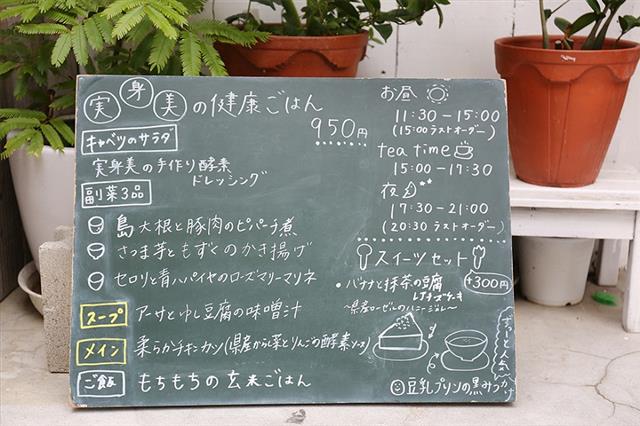 実身美の健康ごはん
950円
キャベツのサラダ
実身美の手作り酵素
ドレッシング
副菜3品
島大根と豚肉のピパーチ煮
さつま芋ともずくのかき揚げ
セロリと青パパイヤのローズマリーマリネ
スープ アーサとゆし豆腐の味噌汁
メイン 柔らかチキンカツ(県産からし菜とりんごの酵素ソース)
ご飯 もちもちの玄米ごはん
お昼
11:30-15:00
(15:00ラストオーダー)
tea time
15:00-17:30
夜
17:30-21:00
(20:30ラストオーダー)
スイーツセット
+300円
・バナナと抹茶の豆腐
レアチーズケーキ
~県産ローゼルのハニージュレ~
ずっと人気
豆乳プリンの黒みつがけ